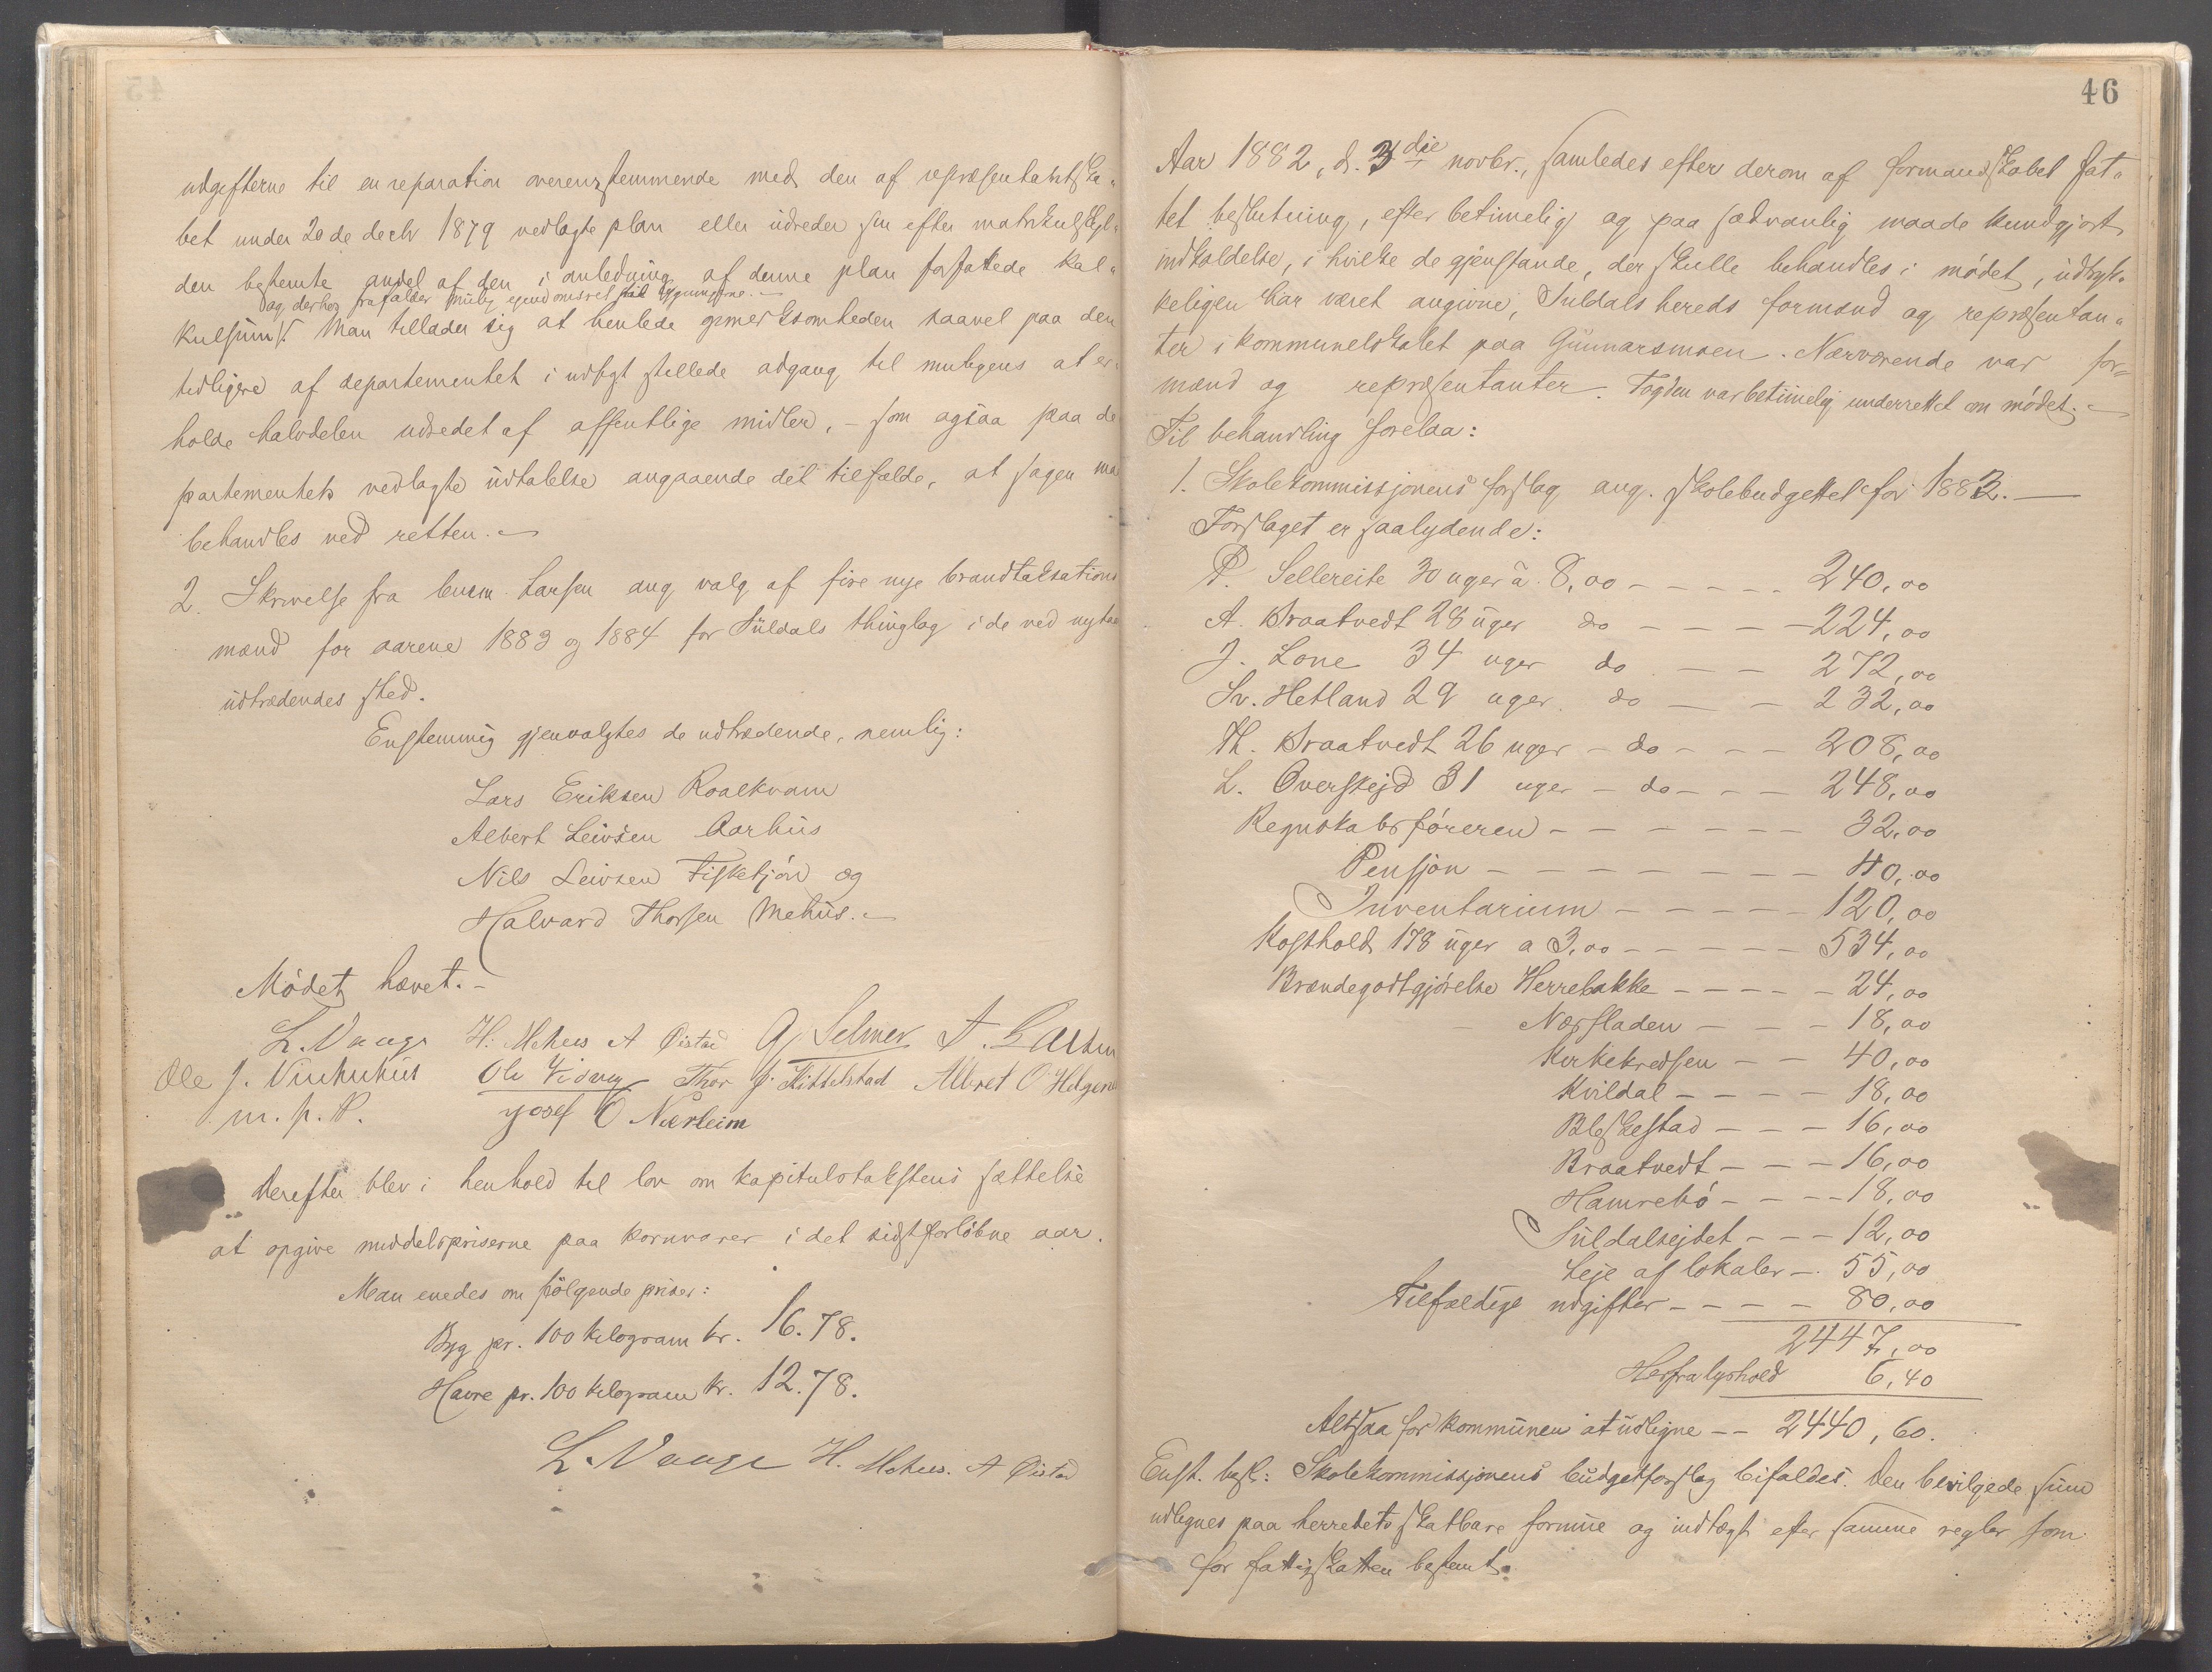 udgifterne til en reparation overensstemmende med den af repræsentantska-
bet under 20de decbr 1879 vedlagte plan eller udreder sin efter matrikulskyl-
den bestemte andel af den i anledning af denne plan forfattede kal-
og derhos frafalder mulig eiendomsret til bygningerne.-
kulsum/. Man tillader sig at henlede opmerksomheden saavel paa den
tidligere af departementet i udsigt stillede adgang til muligens at er-
holde halvdelen udredet af offentlige midler, - som ogsaa paa de
partementets vedlagte udtalelse angaaende det tilfælde, at sagen maa
behandles ved retten. -
2. Skrivelse fra lensm. Larsen ang valg af fire nye brandtaksations
mænd for aarene 1883 og 1884 for Suldals thinglag i de ved nytaar
udtrædendes sted.
Enstemmig gjenvalgtes de udtrædende, nemlig:
Lars Eriksen Roalkvam
Albert Leivsen Aarhus
Nils Leivsen Fisketjøn og
Halvard Thorsen Mehus. -
Mødet hævet. -
L. Vaage H. Mehus A Øistad G Selmer T. Larsen
Ole J. Vinkuhus Ole Vidvey Thor J. Kittelstad Albret O Helgenes
m. p. P. Josef O Nærheim
Derefter blev i henhold til lov om kapitulstakstens sættelse
at opgive middelspriserne paa kornvarer i det sidstforløbne aar.
Man enedes om følgende priser:
Byg pr. 100 kilogram kr. 16.78.
Havre pr. 100 kilogram kr. 12.78.
L. Vaage H. Mehus. A Øistad
46
Aar 1882, d. 3die novbr., samledes efter derom af formandskabet fat-
tet beslutning, efter betimelig og paa sædvanlig maade kundgjort
indkaldelse, i hvilke de gjenstande, der skulle behandles i mødet, udtryk-
keligen har været angivne, Suldals hereds formænd og repræsentan-
ter i kommunelokalet paa Gunnarsmoen. Nærværende var for-
mænd og repræsentanter. Fogden var betimelig underrettet om mødet. -
Til behandling forelaa:
1. Skolekommissjonens forslag ang. skolebudgettet for 1883. -
Forslaget er saalydende:
P. Sellereite 30 uger à 8,00 - - - - - 240,00
A. Braatvedt 28 uger do - - - - 224,00
J. Lone 34 uger do - - 272,00
Sv. Hetland 29 uger do - - 232,00
Th. Braatvedt 26 uger - do - - - 208,00
L. Overskejd 31 uger - do - - - 248,00
Regnskabsføreren - - - - - - 32,00
Pensjon - - - - - - - - 40,00
Inventarium - - - - - 120,00
Kosthold 178 uger a 3,00 - - - - - 534,00
Brændegodtgjørelse Herrebakke - - - - - 24,00
- Nersladen - - - 18,00
Kirkekredsen - - 40,00
Kvildal - - - - 18,00
Bleskestad - - - 16,00
Braatvedt - - - 16,00
Hamrebø - - - - 18,00
Suldalsejdet - - - 12,00
Leje af lokaler - 55,00
Tilfældige udgifter - - - - 80,00
2447,00
Herfra lyshold 6,40
Altsaa for kommunen at udligne - - 2440,60.
Enst. besl.: Skolekommissjonens budgetforslag bifaldes. Den bevilgede sum
udlignes paa herredets skatbare formue og indtægt efter samme regler som
for fattigskatten bestemt.